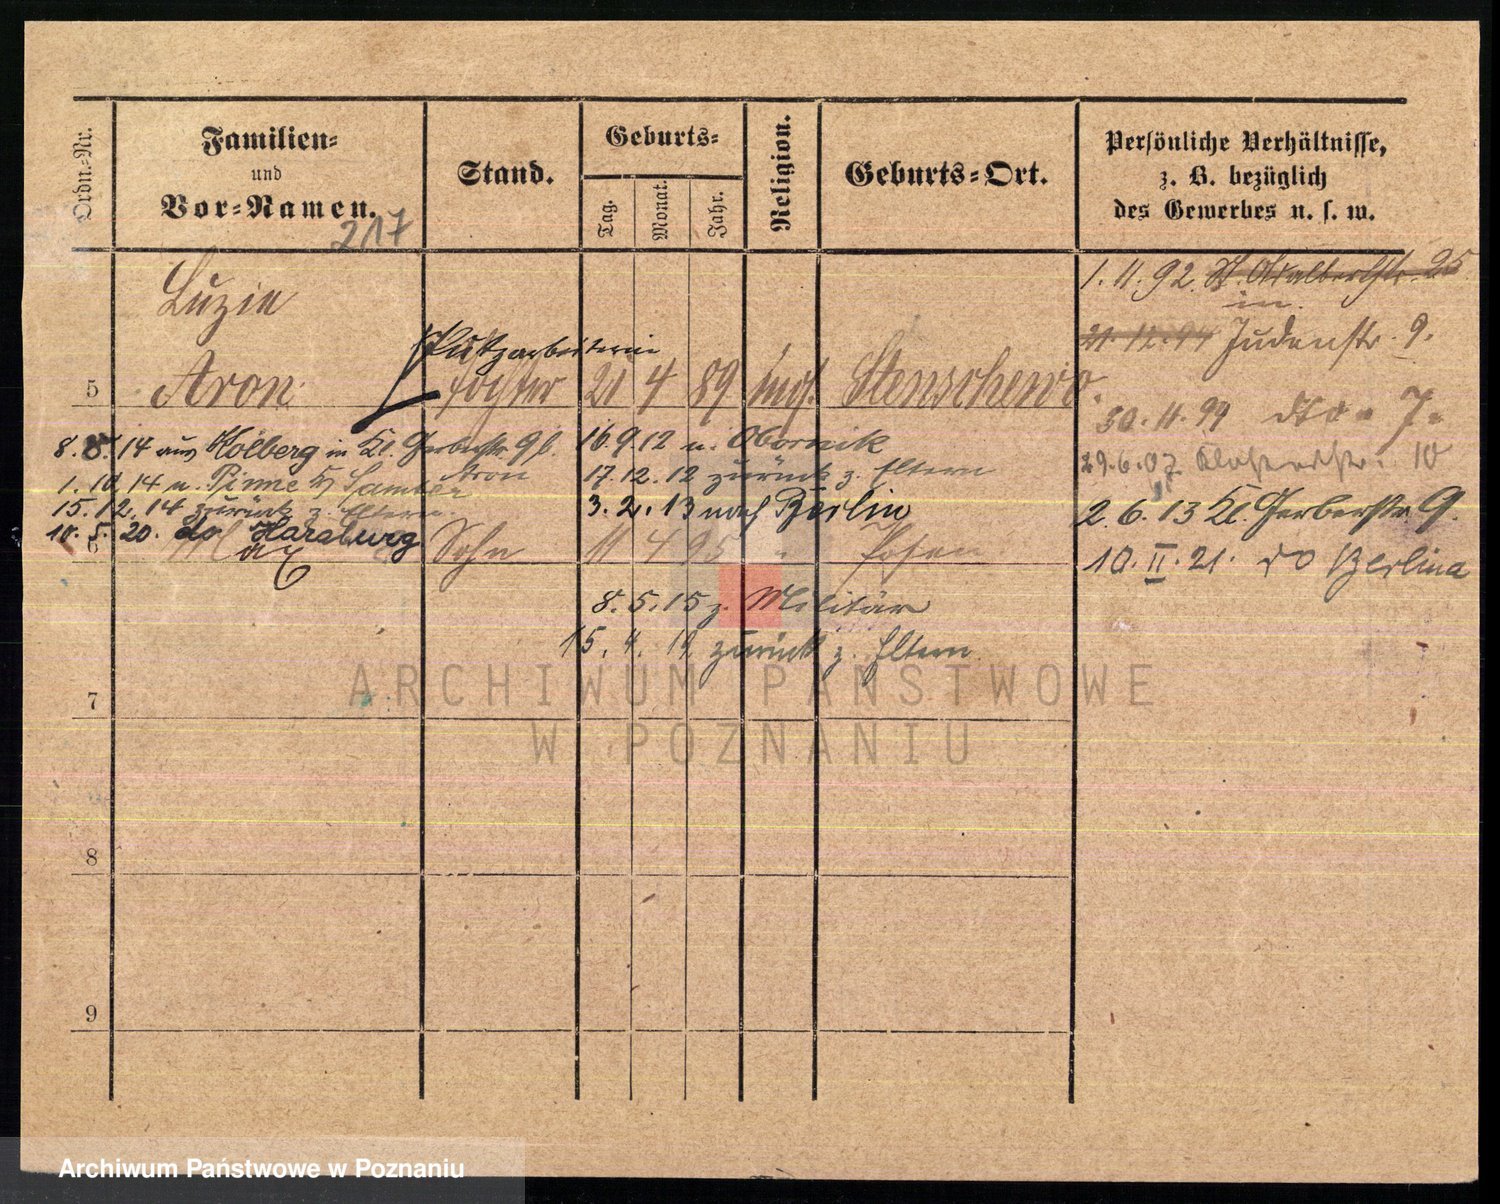 Ordn.-Nr.
Familien-
und
Vor-Namen.
217
Stand.
Geburts-
Tag.
Monat.
Jahr.
Religion.
Geburts-Ort.
Persönliche Verhältnisse,
z. B. bezüglich
des Gewerbes u. s. w.
1. 11. 92. St. Adalbertstr. 25
Luzie
21. 12. 94 Judenstr. 9.
Putzarbeiterin
5 Aron Tochter 21 4 89 Stenschewo.
30. 11. 99 dto
8. 8. 14 aus Kolberg in Kl. Gerberstr. 9 b. 16. 9. 12 n. Obornik
29. 6. 07 10
1. 10. 14 n. Pinne b/ Aron 17. 12. 12 zurück z. Eltern
15. 12. 14 zurück z. Eltern. 3. 2. 13 nach Berlin
2. 6. 13 Kl. Gerberstr. 9.
10. 5. 20. do Harburg
6 Max Sohn 11 4 95 " Posen
10. II. 21. Berlin
8. 5. 15 z. Militär
15. 4. 19 zurück z. Eltern
7
8
9
ARCHIWUM PAŃSTWOWE
W POZNANIU
Archiwum Państwowe w Poznaniu